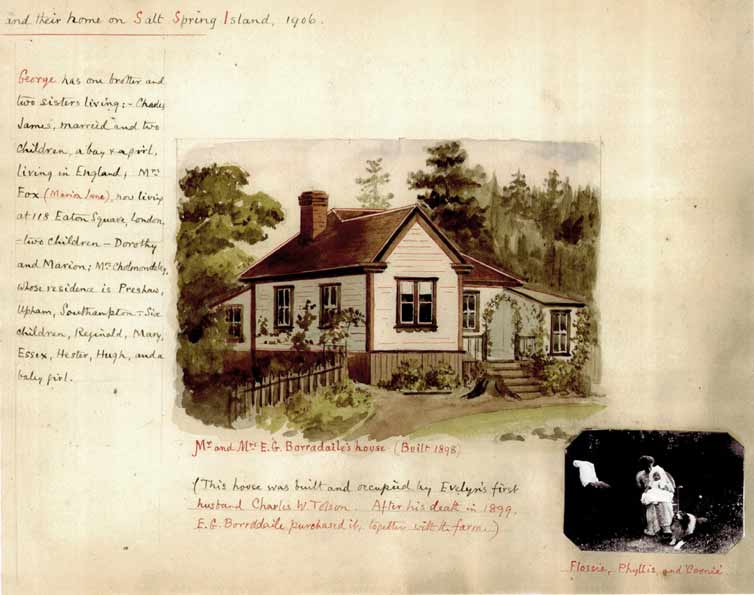 and their home on Salt Spring Island, 1906.
George has one brother and
two sisters living:- Charles
James, married and two
children, a boy & a girl,
living in England; Mrs
Fox (Marion Jane), now living
at 118 Eaton Square, London,
- two children - Dorothy
and Marion; Mrs Cholmondeley,
whose residence is Preshaw,
Upham, Southampton - Six
children, Reginald, Mary,
Essex, Hester, Hugh, and a
baby girl.
Mr and Mrs E.G. Borradaile's house (Built 1898)
(This house was built and occupied by Evelyn's first
husband Charles W. Tolson. After his death in 1899,
E.G. Borradaile purchased it, together with the farm.)
Flossie, Phyllis, and 'Coonie'